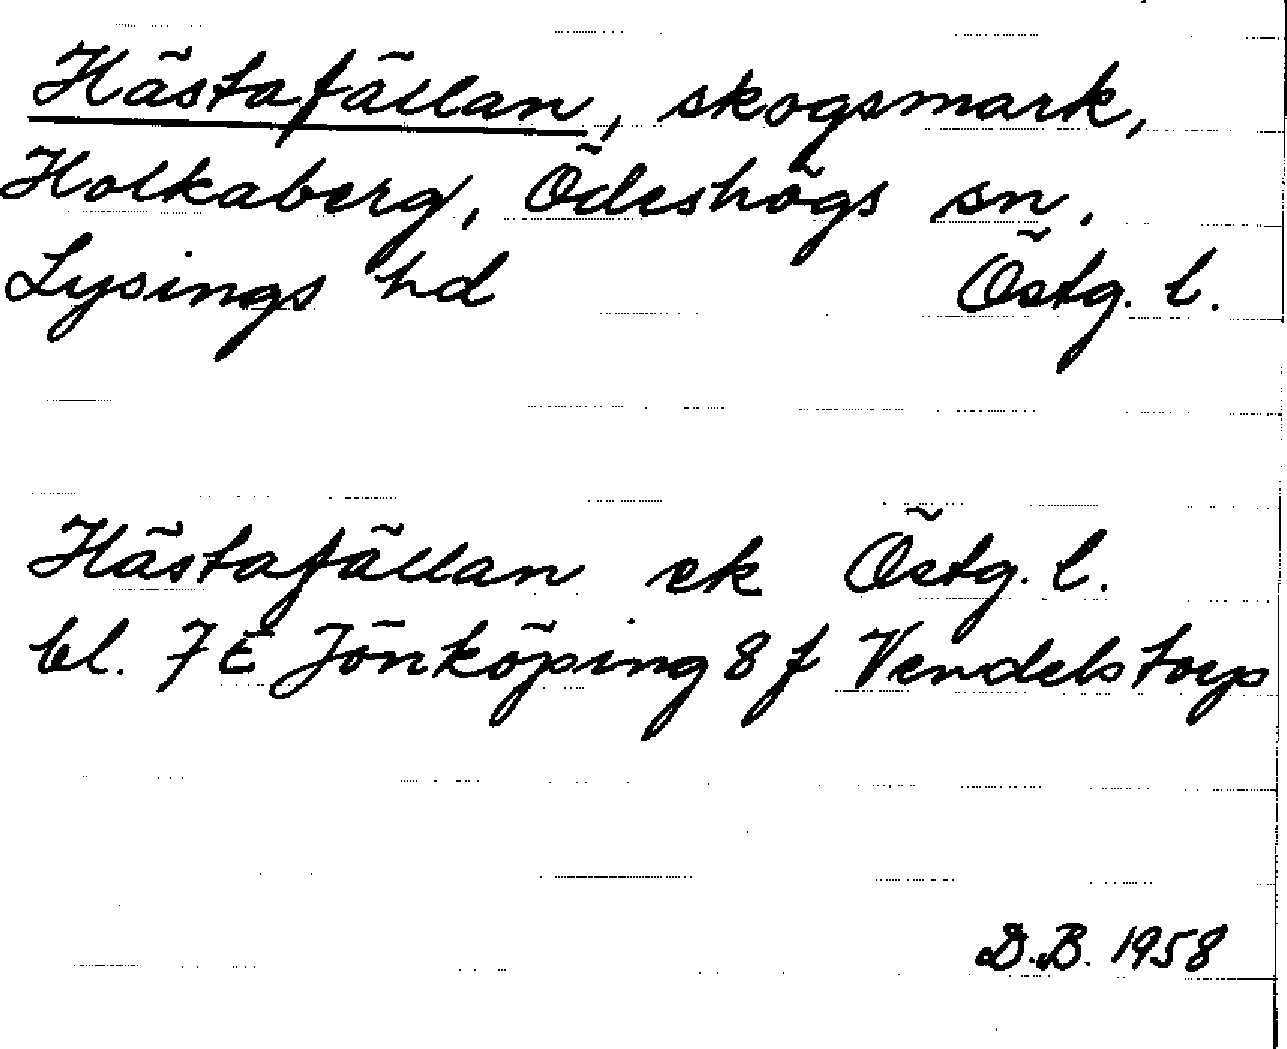 Hästafällan, skogsmark,
Holkaberg, Ödeshögs sn.
Lysings hd Östg. l.
Hästafällan ek Östg. l.
bl. 7 E Jönköping 8 f Vendelstorp
D.B. 1958